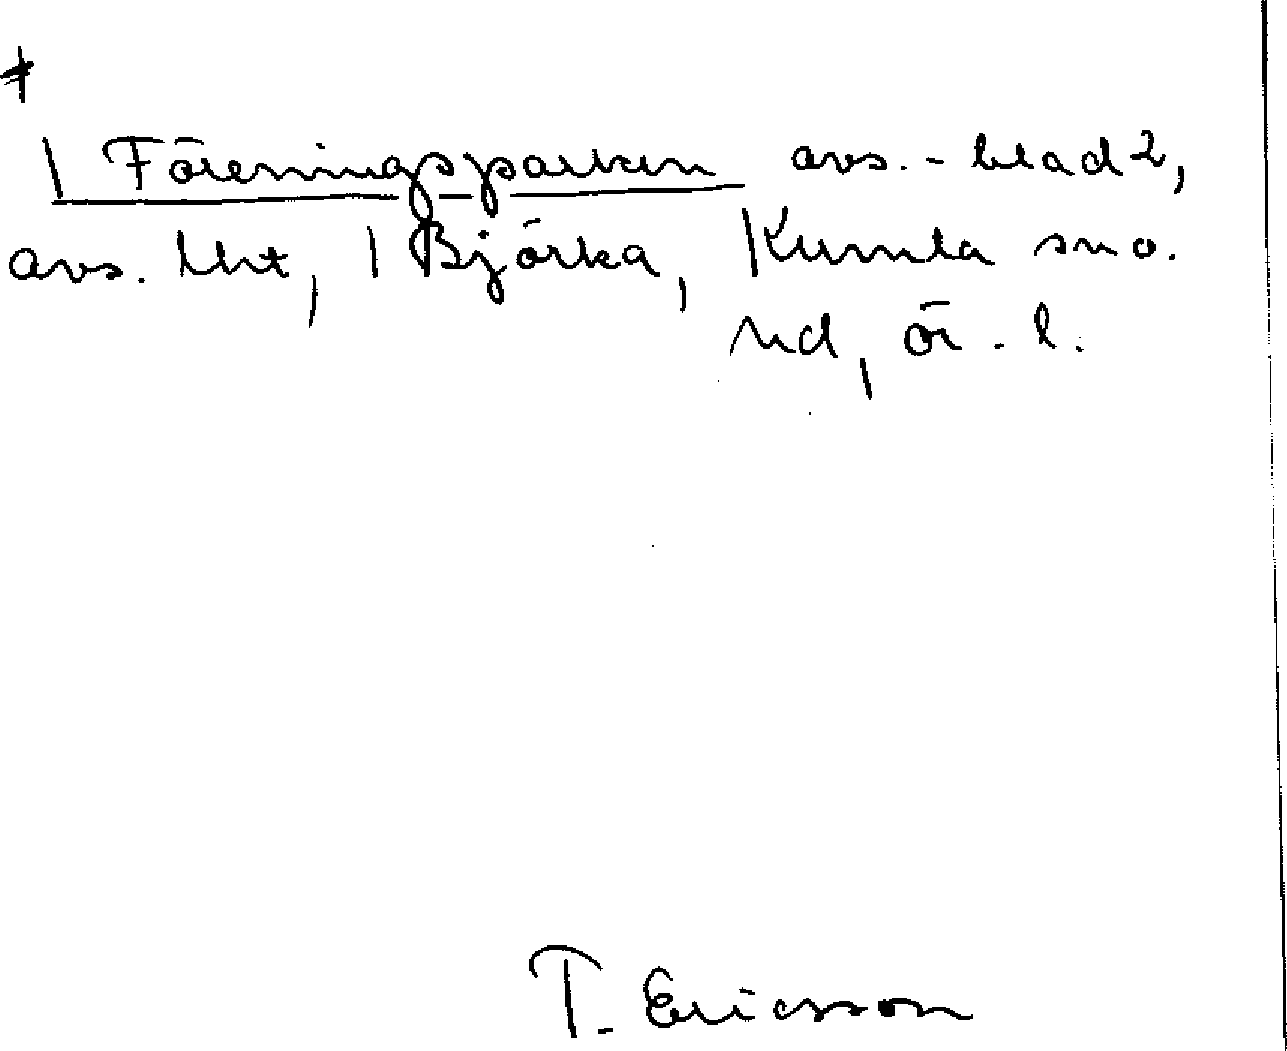 \ Föreningsparken avs. - blad 2,
avs. lht, \ Björka, \ Kumla sn o.
hd, ör. l.
T. Ericson